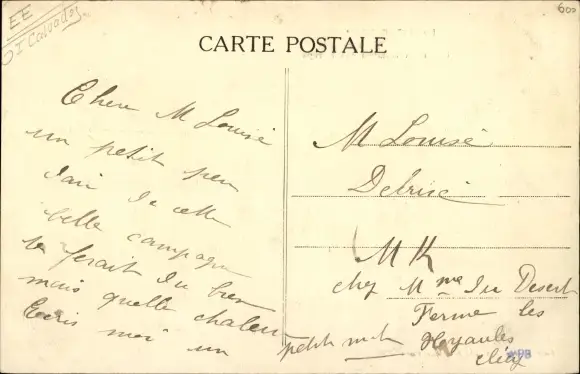 EE
OI Calvados
600
CARTE POSTALE
Chere M Louise
un petit peu
d'air de cette
belle campagne
te ferait du bien
mais quelle chaleur
Ecris moi un petit mot
M Louise
chez Mme du Desert
Ferme les